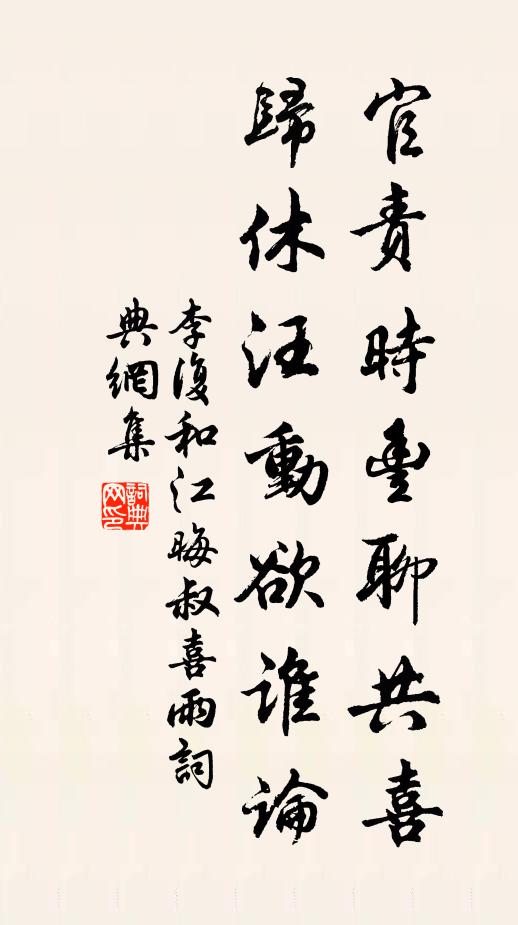 官責時豐聊共喜
歸休汪動欲誰論
李復和江晦叔喜雨詞
典網集
詞典网印